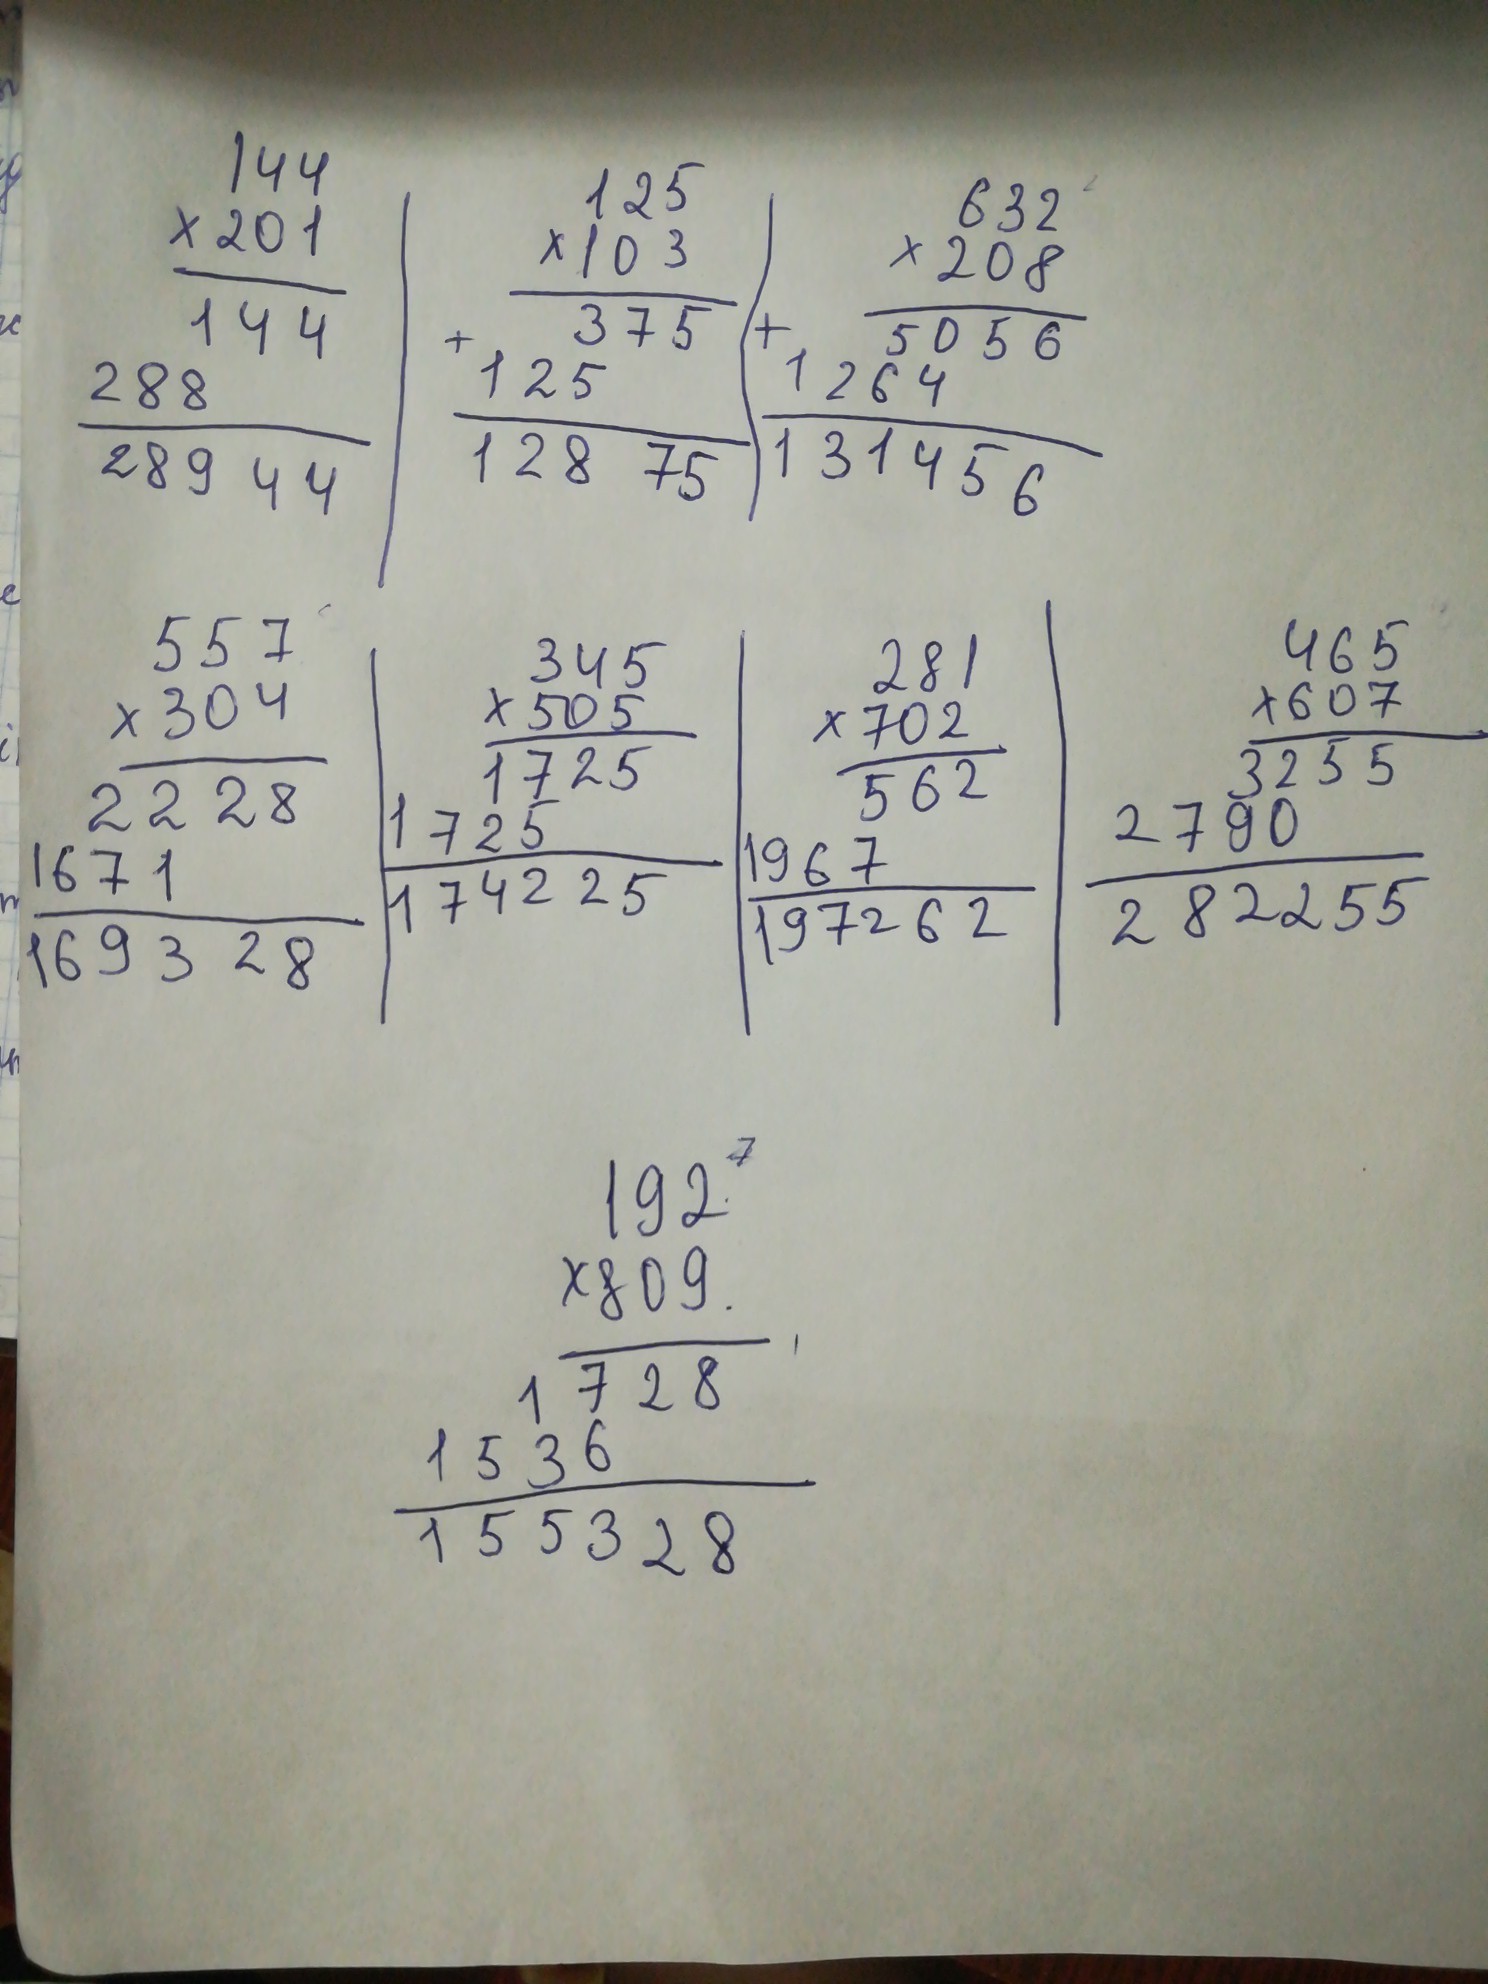 144
×201
144
288
28944
125
×103
+ 375
125
12875
632
×208
+ 5056
1264
131456
557
×304
2228
1671
169328
345
×505
1725
1725
174225
281
×702
562
1967
197262
465
×607
3255
2790
282255
192 7
×809
1728
1536
155328